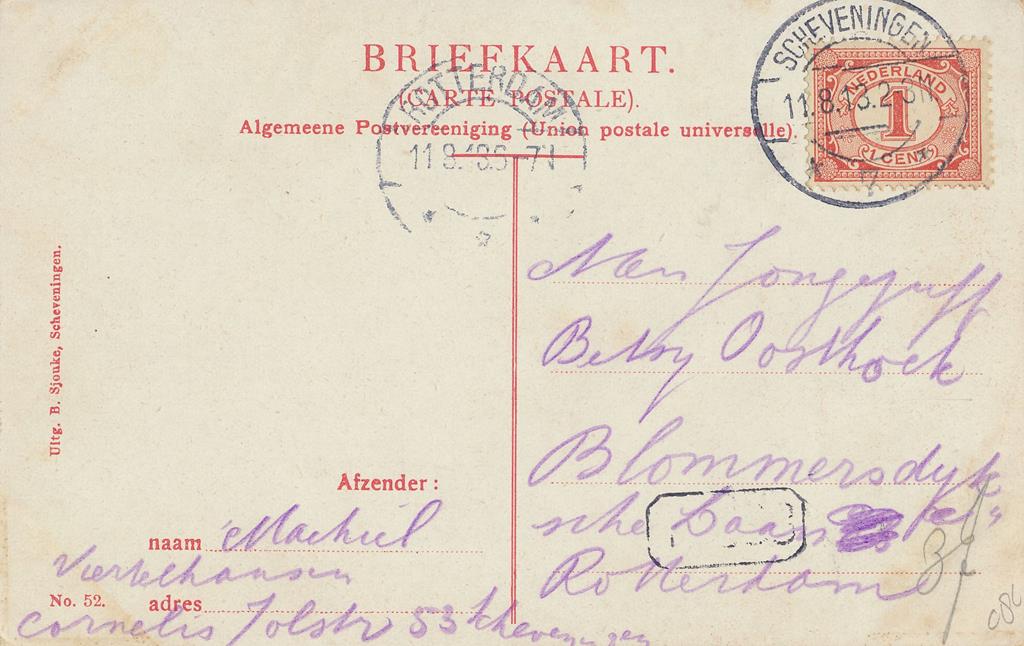 BRIEFKAART.
(CARTE POSTALE).
Algemeene Postvereeniging (Union postale universelle).
SCHEVENINGEN
11.8.13.2-3N
NEDERLAND
1
1 CENT
ROTTERDAM
11.8.13 6-7N
Uitg. B. Sjouke, Scheveningen.
Aan Jongejuff
Betsy Oosthoek
Blommersdyk
sche Laan
Rotterdam
Afzender:
naam Machiel
Viertelhausen
No. 52. adres
Cornelis Jolstr 53 Scheveningen